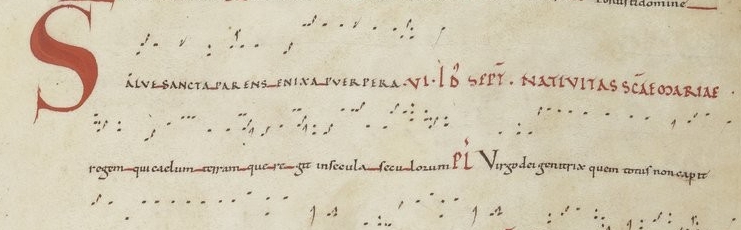 domine
SALVE SANCTA PARENS ENIXA PVERPERA VI · ID SEPT · NATIVITAS SCAE MARIAE
regem qui caelum terram que re git in secula seculorum Ps Virgo dei genitrix quem totus non capit